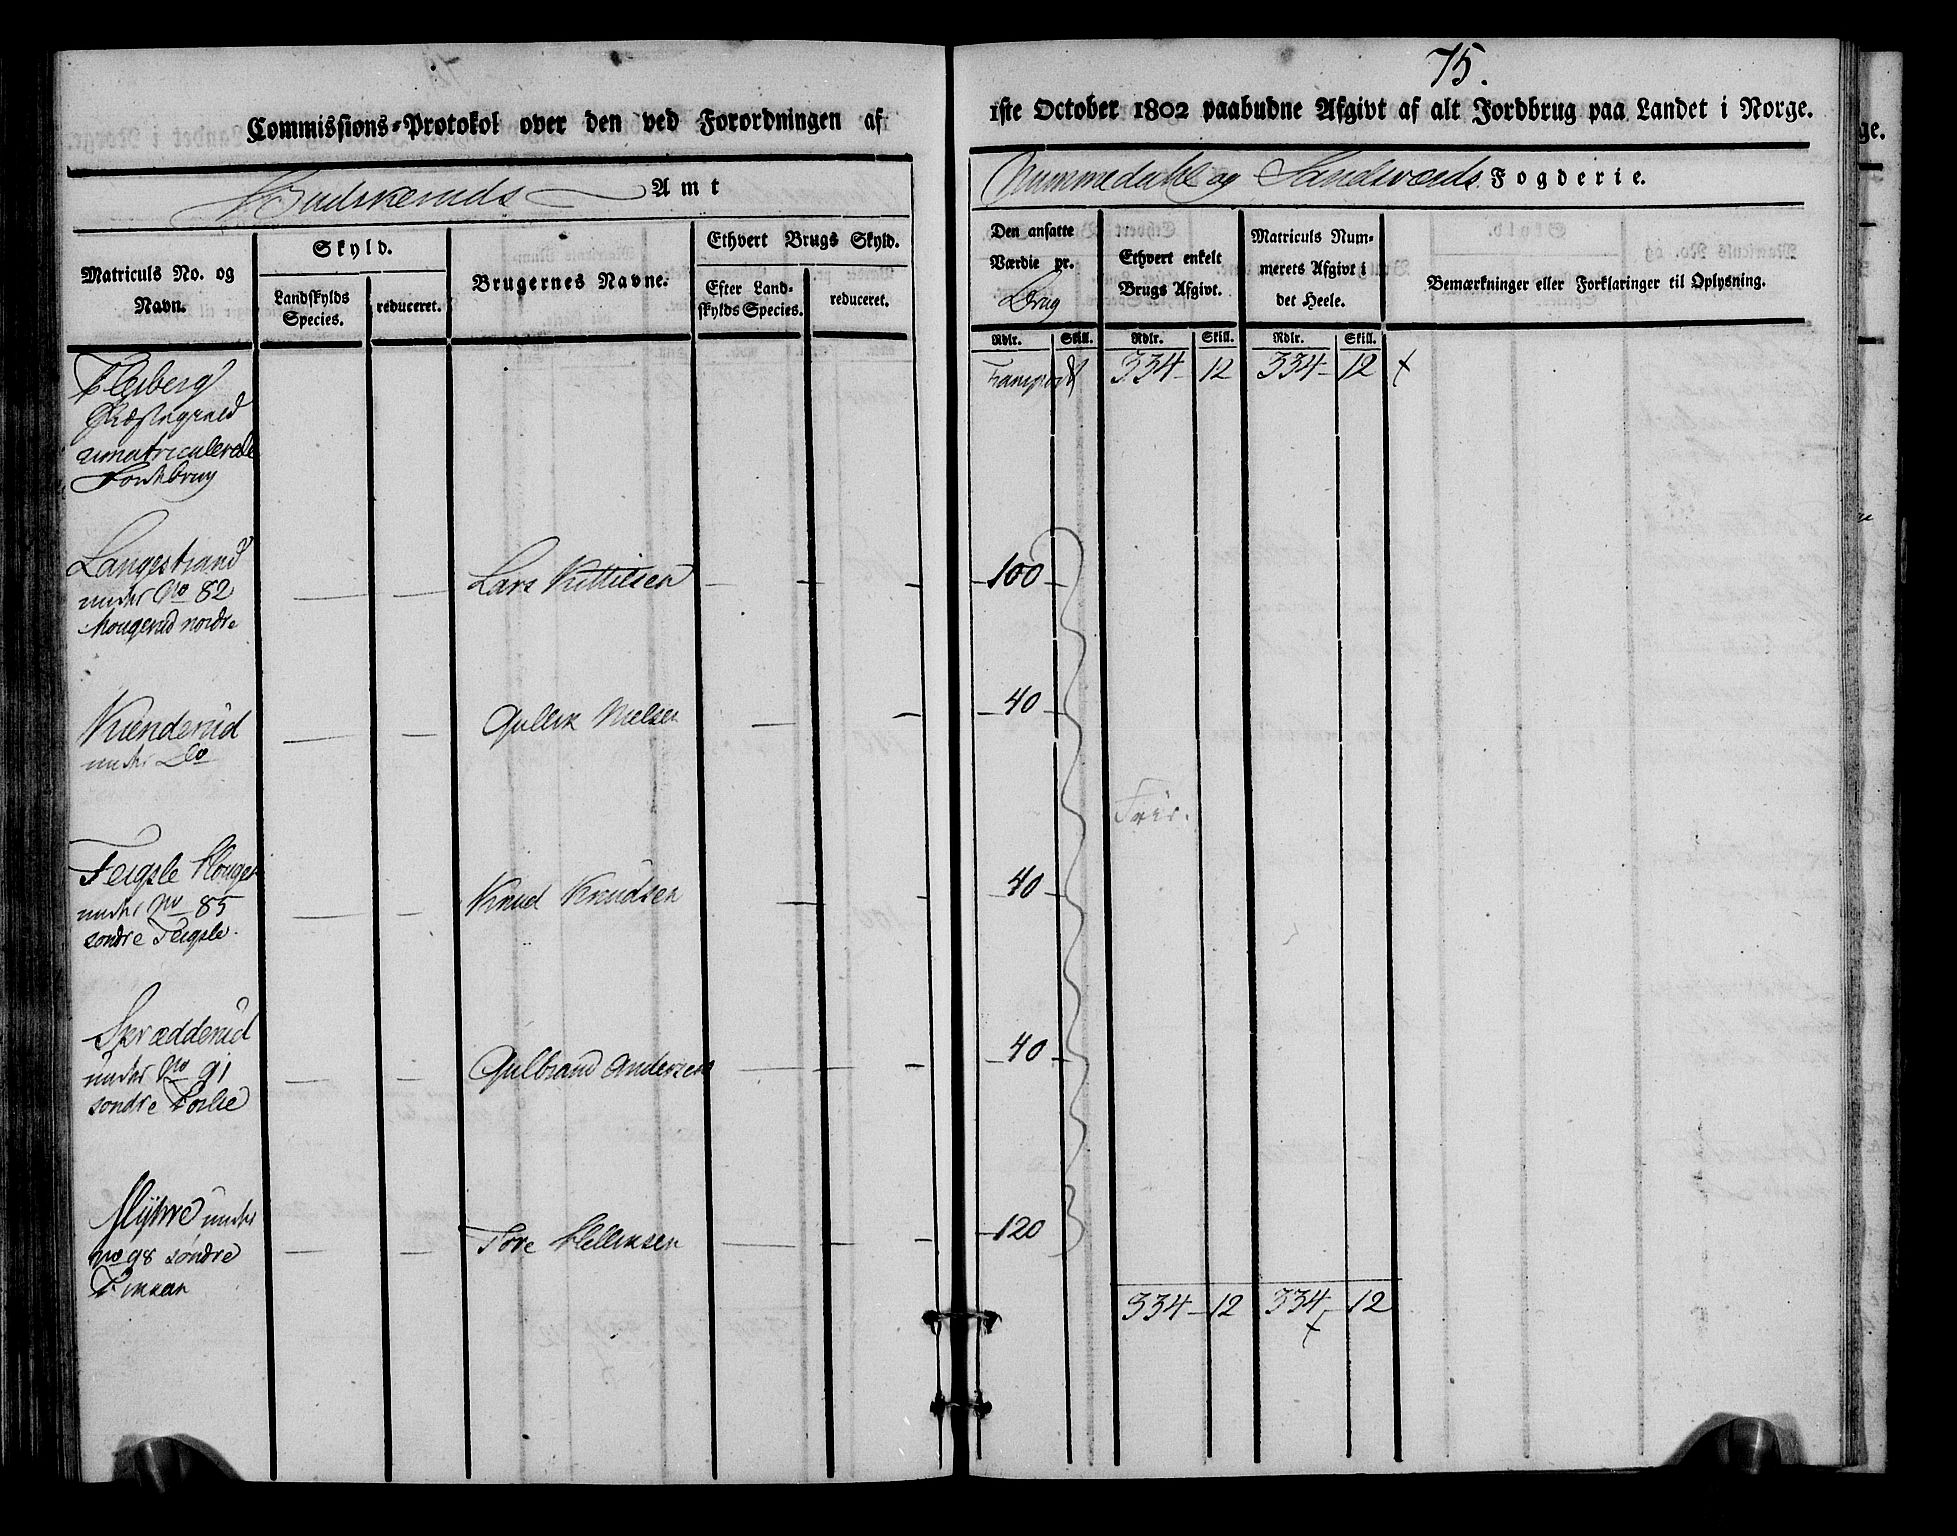 75.
Commissions-Protokol over den ved Forordningen af
1ste October 1802 paabudne Afgivt af alt Jordbrug paa Landet i Norge.
Budskeruds Amt
Nummedahl og Sandsværds Fogderie.
Matriculs No. og Navn.
Skyld.
Landskylds Species.
reduceret.
Brugernes Navne.
Ethvert Brugs Skyld.
Efter Landskylds Species.
reduceret.
Den ansatte Værdie pr. Brug
Ethvert enkelt Brugs Afgivt.
Matriculs Nummerets Afgivt i det Heele.
Bemærkninger eller Forklaringer til Oplysning.
Rdlr. Skill. Rdlr. Skill. Rdlr. Skill.
Flesberg
Præstegield
umatriculerede
Jordbrug
Transport 334 - 12 334 - 12 x
Langestrand
under No 82
Hougerud nordre
Lars Kittilsen - - - 100 -
Kienderud
under Do
Gullik Nielsen - - - 40 -
Frie.
Feigsle Hougen
under No 85
søndre Feigsle.
Knud Knudsen - - - 40 -
Sprædderud
under No 91
søndre
Gulbrand Andersen - - - 40 -
Myhre under
No 98 søndre
Tore Hellixsen - - - 120
334 - 12 334 - 12
x